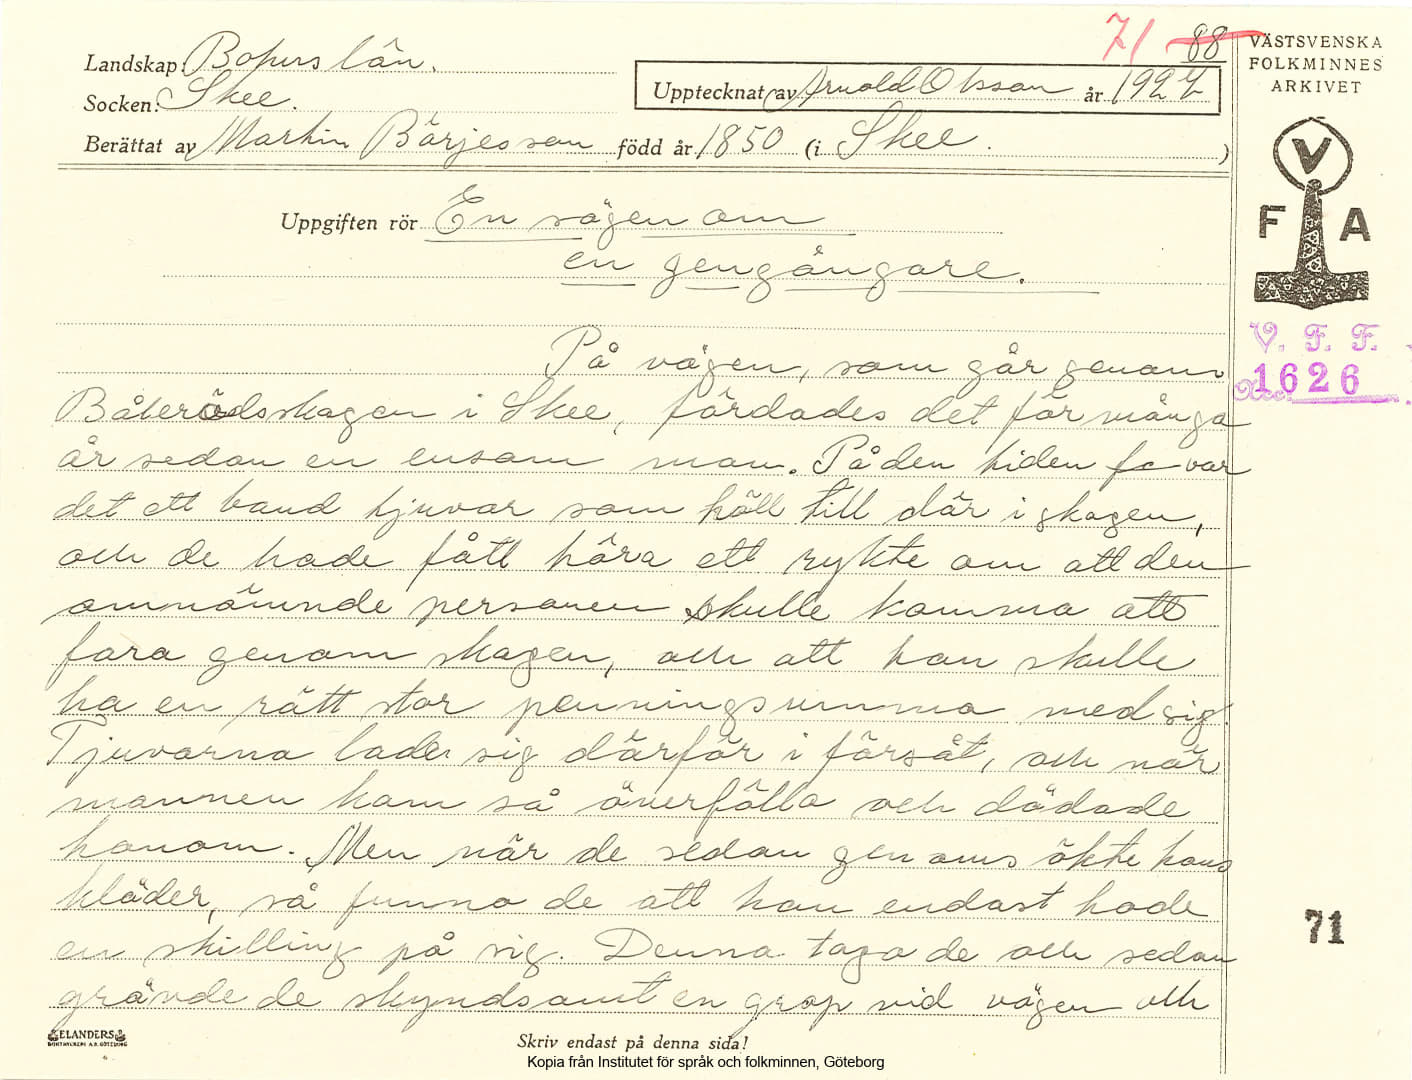 71 88
Landskap: Bohuslän.
Socken: Skee.
Berättat av Martin Börjesson född år 1850 (i Skee.)
Upptecknat av Arnold Olsson år 1927
VÄSTSVENSKA
FOLKMINNES
ARKIVET
V
F A
V. F. F.
Acc. 1626
Uppgiften rör En sägen om
en gengångare.
På vägen, som går genom
Bålerödsskogen i Skee, färdades det för många
år sedan en ensam man. På den tiden fc var
det ett band tjuvar som höll till där i skogen,
och de hade fått höra ett rykte om att den
omnämnde personen skulle komma att
fara genom skogen, och att han skulle
ha en rätt stor penningsumma med sig.
Tjuvarna lade sig därför i försåt, och när
mannen kom så överfölla och dödade
honom. Men när de sedan genomsökte hans
kläder, så funno de att han endast hade
en skilling på sig. Denna togo de och sedan
grävde de skyndsamt en grop vid vägen och
71
ELANDERS
BOKTRYCKERI A.B. GÖTEBORG
Skriv endast på denna sida!
Kopia från Institutet för språk och folkminnen, Göteborg